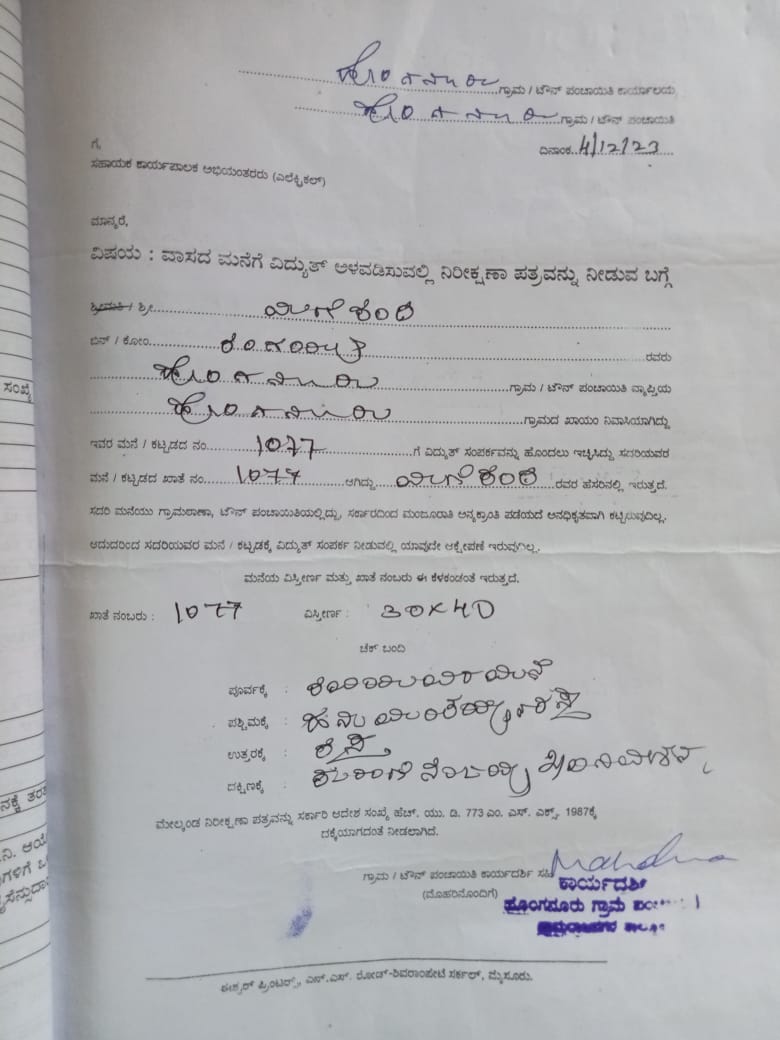 ಹೊಂಗನೂರು ಗ್ರಾಮ / ಟೌನ್ ಪಂಚಾಯಿತಿ ಕಾರ್ಯಾಲಯ
ಹೊಂಗನೂರು ಗ್ರಾಮ / ಟೌನ್ ಪಂಚಾಯಿತಿ
ದಿನಾಂಕ..4/12/23
ಗೆ,
ಸಹಾಯಕ ಕಾರ್ಯಪಾಲಕ ಅಭಿಯಂತರರು (ಎಲೆಕ್ಟ್ರಿಕಲ್)
ಮಾನ್ಯರೆ,
ವಿಷಯ : ವಾಸದ ಮನೆಗೆ ವಿದ್ಯುತ್ ಅಳವಡಿಸುವಲ್ಲಿ ನಿರೀಕ್ಷಣಾ ಪತ್ರವನ್ನು ನೀಡುವ ಬಗ್ಗೆ
ಶ್ರೀಮತಿ / ಶ್ರೀ
ಬಿನ್ / ಕೋಂ ರವರು
ಹೊಂಗನೂರು ಗ್ರಾಮ / ಟೌನ್ ಪಂಚಾಯಿತಿ ವ್ಯಾಪ್ತಿಯ
ಹೊಂಗನೂರು ಗ್ರಾಮದ ಖಾಯಂ ನಿವಾಸಿಯಾಗಿದ್ದು
ಇವರ ಮನೆ / ಕಟ್ಟಡದ ನಂ. 1077 ಗೆ ವಿದ್ಯುತ್ ಸಂಪರ್ಕವನ್ನು ಹೊಂದಲು ಇಚ್ಛಿಸಿದ್ದು ಸದರಿಯವರ
ಮನೆ / ಕಟ್ಟಡದ ಖಾತೆ ನಂ. 1077 ಆಗಿದ್ದು ರವರ ಹೆಸರಿನಲ್ಲಿ ಇರುತ್ತದೆ.
ಸದರಿ ಮನೆಯು ಗ್ರಾಮಠಾಣಾ, ಟೌನ್ ಪಂಚಾಯಿತಿಯಲ್ಲಿದ್ದು, ಸರ್ಕಾರದಿಂದ ಮಂಜೂರಾತಿ ಅನ್ಯಕ್ರಾಂತಿ ಪಡೆಯದೆ ಅನಧಿಕೃತವಾಗಿ ಕಟ್ಟಿರುವುದಿಲ್ಲ.
ಆದುದರಿಂದ ಸದರಿಯವರ ಮನೆ / ಕಟ್ಟಡಕ್ಕೆ ವಿದ್ಯುತ್ ಸಂಪರ್ಕ ನೀಡುವಲ್ಲಿ ಯಾವುದೇ ಆಕ್ಷೇಪಣೆ ಇರುವುದಿಲ್ಲ.
ಮನೆಯ ವಿಸ್ತೀರ್ಣ ಮತ್ತು ಖಾತೆ ನಂಬರು ಈ ಕೆಳಕಂಡಂತೆ ಇರುತ್ತದೆ.
ಖಾತೆ ನಂಬರು : 1077 ವಿಸ್ತೀರ್ಣ : 30×40
ಚೆಕ್ ಬಂದಿ
ಪೂರ್ವಕ್ಕೆ :
ಪಶ್ಚಿಮಕ್ಕೆ :
ಉತ್ತರಕ್ಕೆ : ರಸ್ತೆ
ದಕ್ಷಿಣಕ್ಕೆ :
ಮೇಲ್ಕಂಡ ನಿರೀಕ್ಷಣಾ ಪತ್ರವನ್ನು ಸರ್ಕಾರಿ ಆದೇಶ ಸಂಖ್ಯೆ ಹೆಚ್. ಯು. ಡಿ. 773 ಎಂ. ಎಸ್. ಎಕ್ಸ್. 1987ಕ್ಕೆ
ದಕ್ಕೆಯಾಗದಂತೆ ನೀಡಲಾಗಿದೆ.
ಗ್ರಾಮ / ಟೌನ್ ಪಂಚಾಯಿತಿ ಕಾರ್ಯದರ್ಶಿ ಸಹಿ
(ಮೊಹರಿನೊಂದಿಗೆ)
ಕಾರ್ಯದರ್ಶಿ
ಹೊಂಗನೂರು ಗ್ರಾಮ ಪಂಚಾಯಿತಿ
ಈಶ್ವರ್ ಪ್ರಿಂಟರ್ಸ್, ಎನ್.ಎಸ್. ರೋಡ್-ಶಿವರಾಂಪೇಟೆ ಸರ್ಕಲ್, ಮೈಸೂರು.